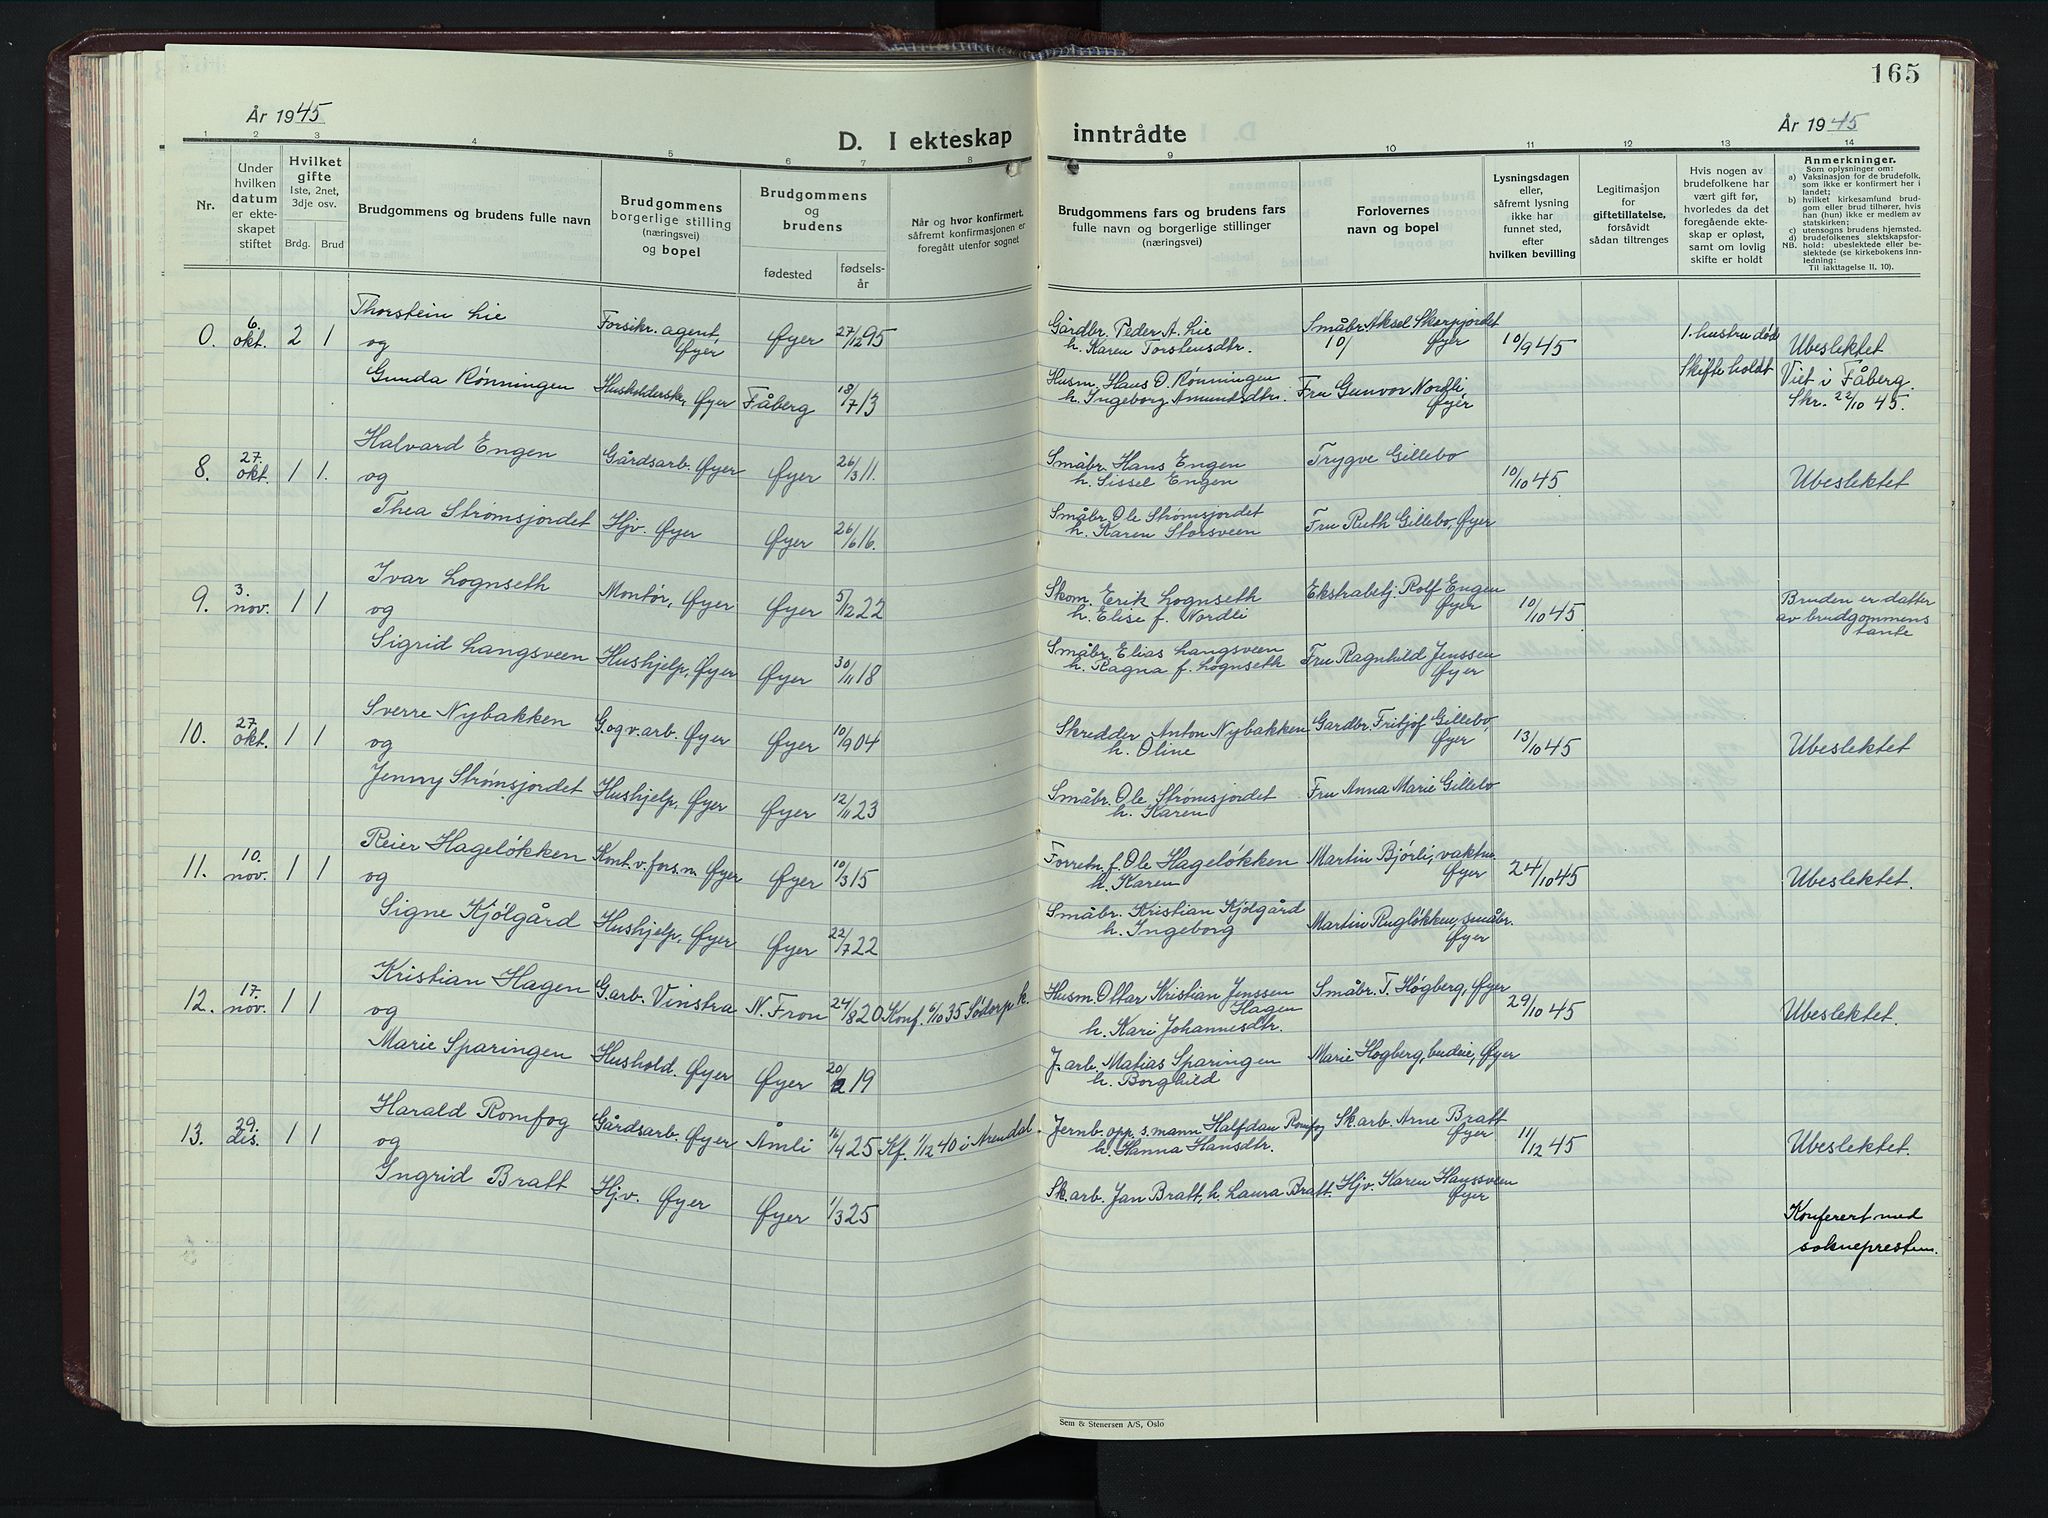 165
År 1945
År 1945
D. I ekteskap inntrådte
1 2 3 4 5 6 7 8 9 10 11 12 13 14
Nr.
Under hvilken datum er ekteskapet stiftet
Hvilket gifte 1ste, 2net, 3dje osv.
Brdg. Brud
Brudgommens og brudens fulle navn
Brudgommens borgerlige stilling (næringsvei) og bopel
Brudgommens og brudens
fødested
fødselsår
Når og hvor konfirmert, såfremt konfirmasjonen er foregått utenfor sognet
Brudgommens fars og brudens fars fulle navn og borgerlige stillinger (næringsvei)
Forlovernes navn og bopel
Lysningsdagen eller, såfremt lysning ikke har funnet sted, efter hvilken bevilling
Legitimasjon for giftetillatelse, forsåvidt sådan tiltrenges
Hvis nogen av brudefolkene har vært gift før, hvorledes da det foregående ekteskap er opløst, samt om lovlig skifte er holdt
Anmerkninger.
Som oplysninger om:
a) Vaksinasjon for de brudefolk, som ikke er konfirmert her i landet;
b) hvilket kirkesamfund brudgom eller brud tilhører, hvis han (hun) ikke er medlem av statskirken;
c) utensogns brudens hjemsted.
d) brudefolkenes slektskapsforhold: ubeslektede eller beslektede (se kirkebokens innledning:
NB. Til iakttagelse II. 10).
0. 6. okt. 2 1 Thorstein Lie Forsikr. agent, Øyer Øyer 27/12 95 Gårdbr. Peder A. Lie h. Karen Torstensdtr. Småbr. Aksel Skarpjordet 10/ Øyer 10/9 45 1. hustru død Ubeslektet
og
Gunda Rønningen Husholderske, Øyer Fåberg 18/7 13 Husm. Hans O. Rønningen h. Ingeborg Amundsdtr. Fru Gunvor Nordli Øyer Skifte holdt Viet i Fåberg. Skr. 22/10 45.
8. 27. okt. 1 1. Halvard Engen Gårdsarb. Øyer Øyer 26/3 11. Småbr. Hans Engen h. Sissel Engen Trygve Gillebo 10/10 45 Ubeslektet
og
Thea Strømsjordet Hjv. Øyer Øyer 26/6 16. Småbr. Ole Strømsjordet h. Karen Storsveen Fru Ruth Gillebo, Øyer
9. 3. nov. 1 1 Ivar Lognseth Montør, Øyer Øyer 5/12 22 Skom. Erik Lognseth h. Elise f. Nordli Ekstrabetj. Rolf Engen Øyer 10/10 45 Bruden er datter av brudgommens tante
og
Sigrid Langsveen Hushjelp, Øyer Øyer 30/11 18 Småbr. Elias Langsveen h. Ragna f. Lognseth Fru Ragnhild Jenssen Øyer
10. 27. okt. 1 1 Sverre Nybakken G. og v. arb. Øyer Øyer 10/9 04 Skredder Anton Nybakken h. Oline Gardbr. Fritjof Gillebo, Øyer 13/10 45 Ubeslektet
og
Jenny Strømsjordet Hushjelp. Øyer Øyer 12/11 23 Småbr. Ole Strømsjordet h. Karen Fru Anna Marie Gillebo
11. 10. nov. 1 1 Reier Hageløkken Kont. v. fors.n. Øyer Øyer 10/3 15 Forretn. f. Ole Hageløkken h. Karen Martin Bjørli, vaktm. Øyer 24/10 45 Ubeslektet.
og
Signe Kjølgård Hushjelp, Øyer Øyer 22/7 22 Småbr. Kristian Kjølgård h. Ingeborg Martin Rugløkken, småbr. Øyer
12. 17. nov. 1 1 Kristian Hagen G. arb. Vinstra N. Fron 24/8 20 Konf. 6/10 35 Sødorp k. Husm. Ottar Kristian Jenssen Hagen h. Kari Johannesdtr. Småbr. T. Høgberg, Øyer 29/10 45 Ubeslektet.
og
Marie Sparingen Hushold. Øyer Øyer 20/2 19 J. arb. Matias Sparingen h. Borghild Marie Høgberg, budeie, Øyer
13. 29. des. 1 1 Harald Romfog Gårdsarb. Øyer Åmli 16/4 25 Kf. 1/12 40 i Arendal. Jernb. opp. s. mann Halfdan Romfog h. Hanna Hansdtr. Sk. arb. Arne Bratt Øyer 11/12 45 Ubeslektet.
og
Ingrid Bratt Hjv. Øyer Øyer 1/3 25 Sk. arb. Jan Bratt, h. Laura Bratt. Hjv. Karen Hanssveen Øyer
Konferert med sokneprestem.
Sem & Stenersen A/S, Oslo